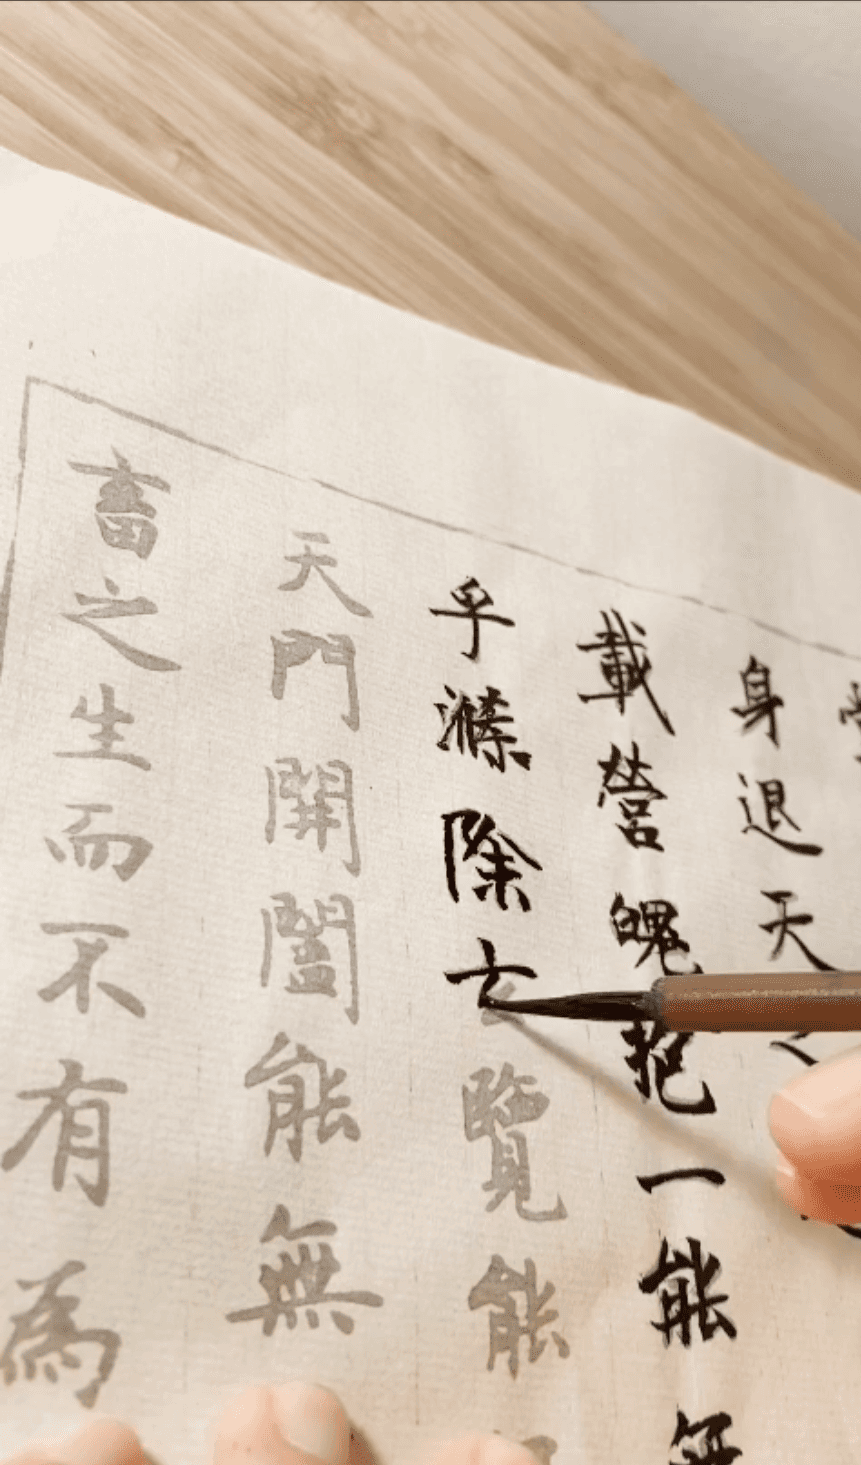 身退天之
載營魄抱一能無
乎滌除玄覽能
天門開闔能無
畜之生而不有為